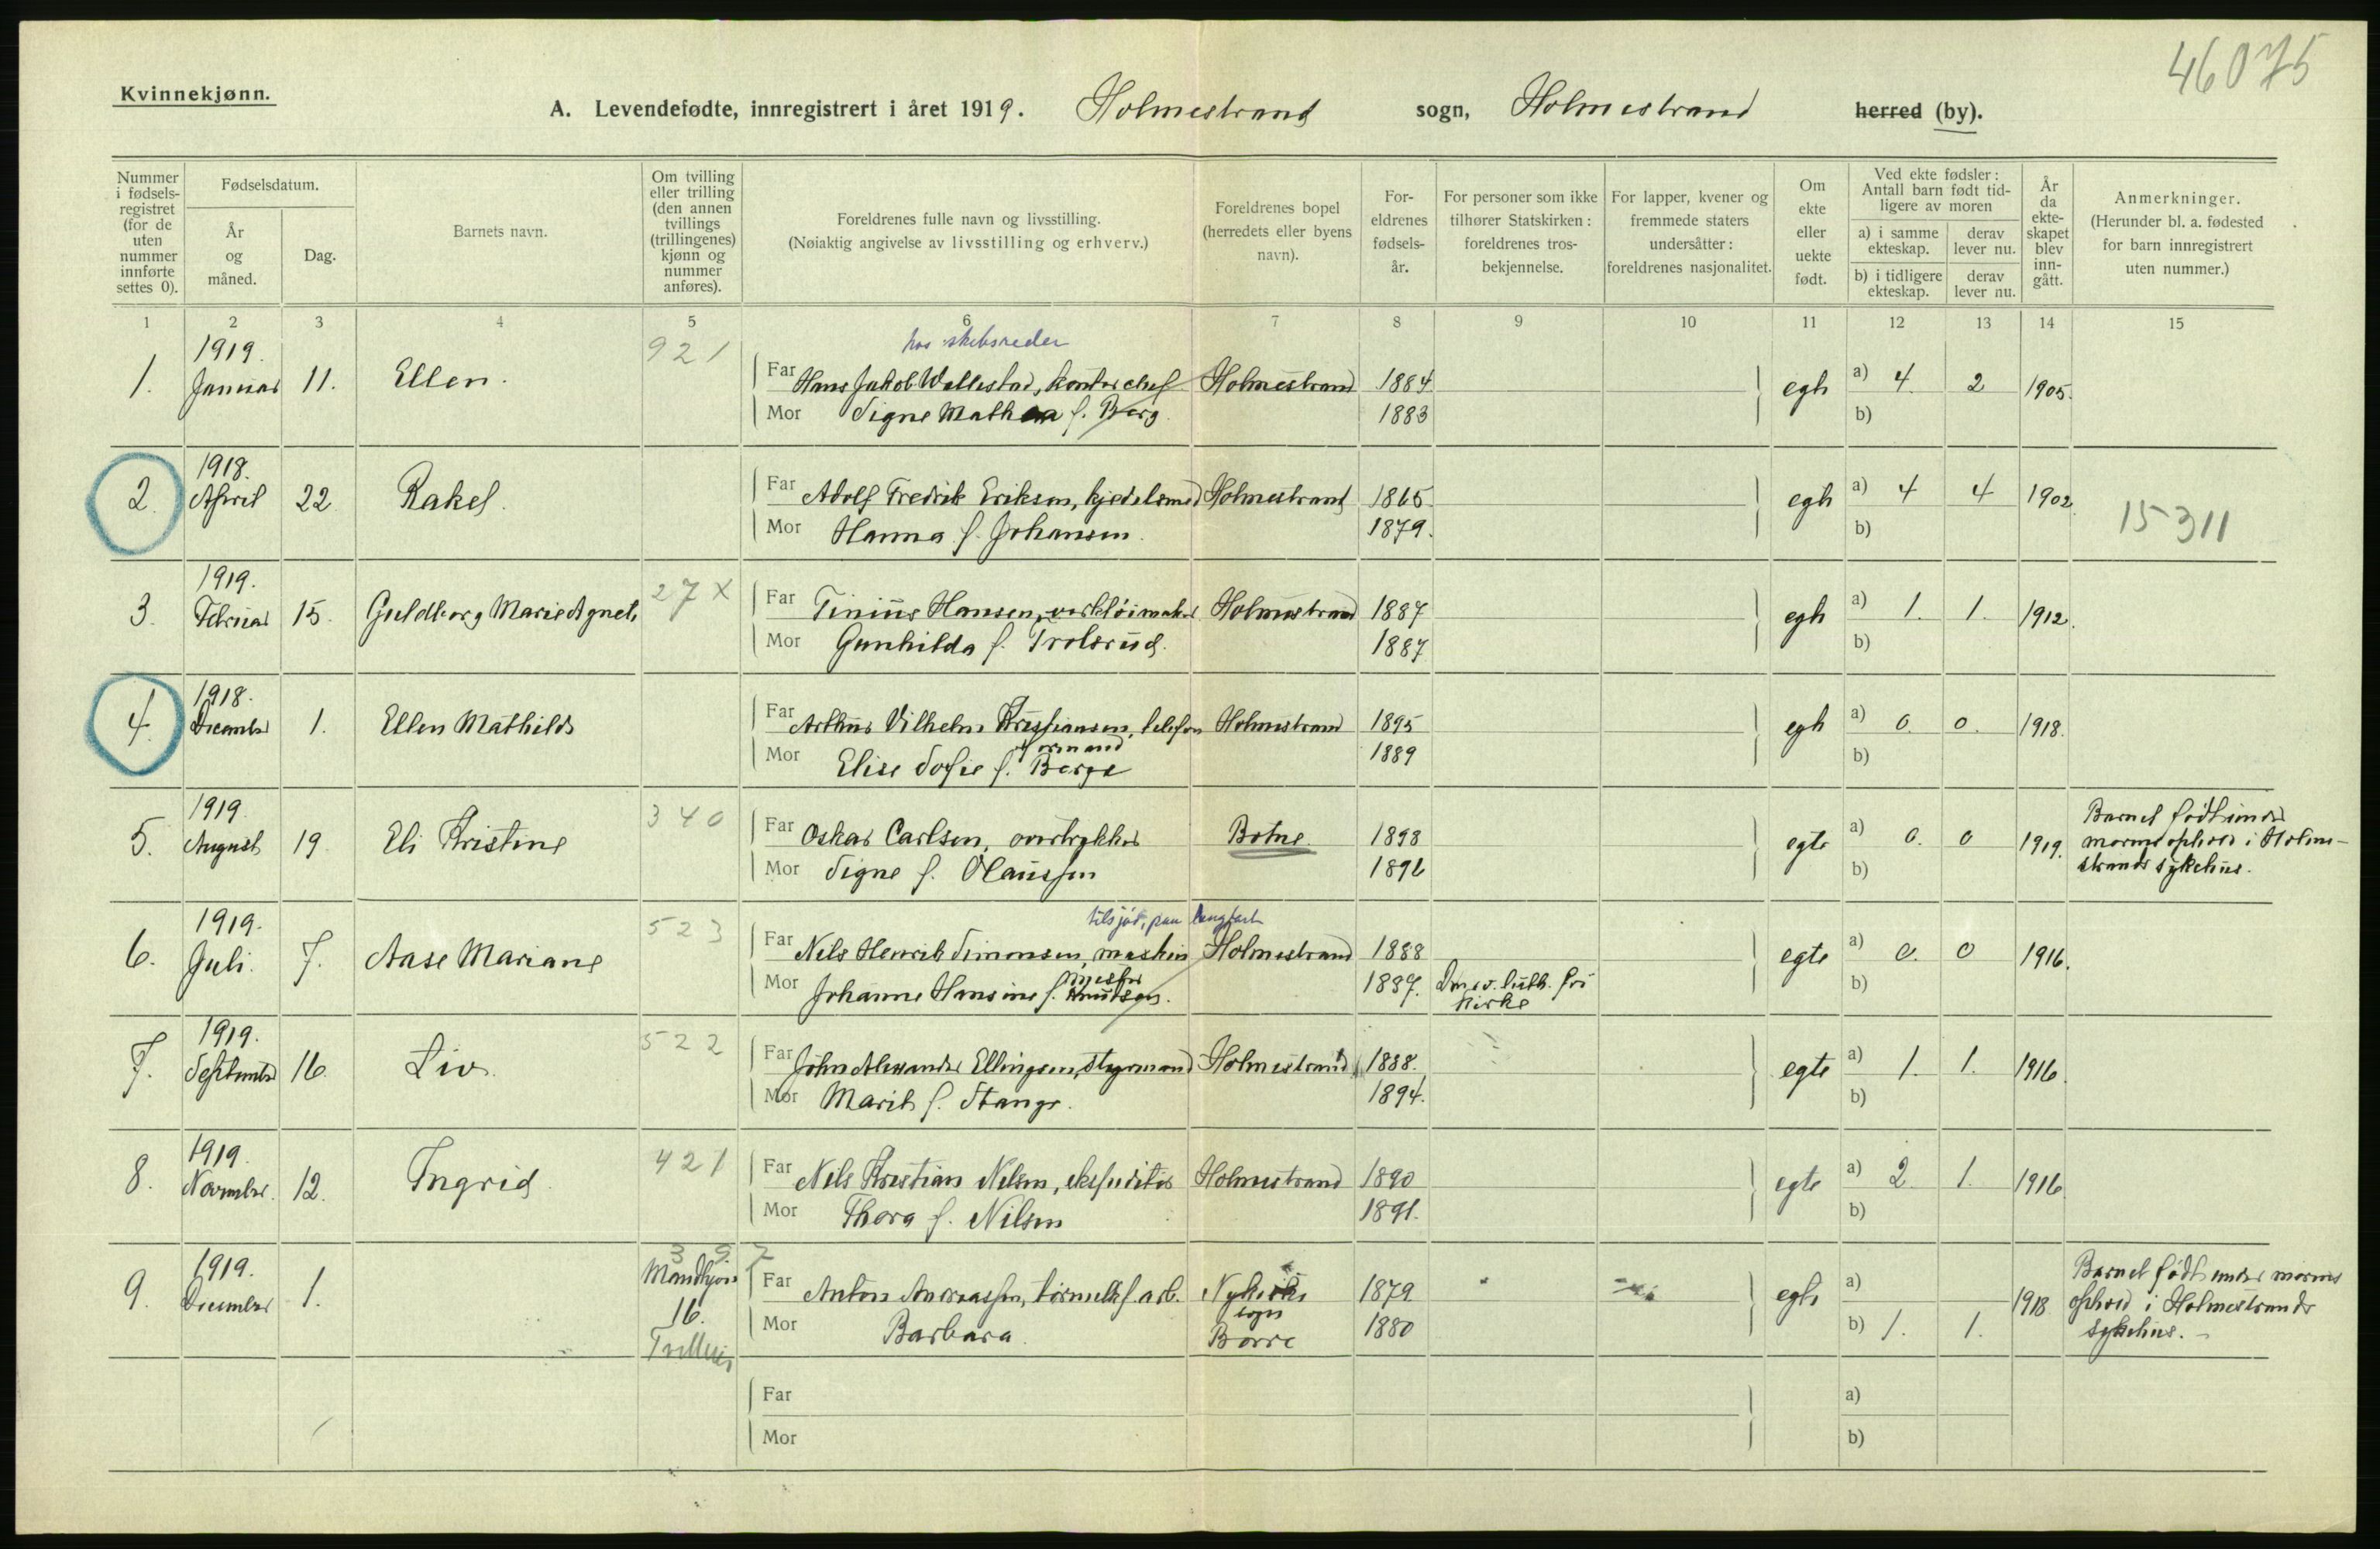 46075
Kvinnekjønn.
A. Levendefødte, innregistrert i året 1919. Holmestrand sogn, Holmestrand herred (by).
Nummer i fødsels-registret (for de uten nummer innførte settes 0).
Fødselsdatum.
År og måned.
Dag.
Barnets navn.
Om tvilling eller trilling (den annen tvillings (trillingenes) kjønn og nummer anføres).
Foreldrenes fulle navn og livsstilling.
(Nøiaktig angivelse av livsstilling og erhverv.)
Foreldrenes bopel (herredets eller byens navn).
For-eldrenes fødsels-år.
For personer som ikke tilhører Statskirken: foreldrenes tros-bekjennelse.
For lapper, kvener og fremmede staters undersåtter: foreldrenes nasjonalitet.
Om ekte eller uekte født.
Ved ekte fødsler: Antall barn født tid-ligere av moren
a) i samme ekteskap.
derav lever nu.
b) i tidligere ekteskap.
derav lever nu.
År da ekte-skapet blev inn-gått.
Anmerkninger.
(Herunder bl. a. fødested for barn innregistrert uten nummer.)
1 2 3 4 5 6 7 8 9 10 11 12 13 14 15
1919.
921
hos skibsreder
1. Januar 11. Ellen. Far Hans Jakob Wallestad, kontorchef Holmestrand 1884 egte a) 4. 2 1905.
Mor Signe Mathea f. Berg. 1883 b)
1918.
2. April 22 Rakel. Far Adolf Fredrik Eriksen, kjedelsmed Holmestrand 1865 egte a) 4 4 1902
Mor Hanna f. Johansen. 1879. b)
15311
1919.
27 X
3. Februar 15. Guldborg Marie Agnete Far Tinius Hansen, verktøimaker Holmestrand 1887 egte a) 1. 1. 1912.
Mor Gunhilda f. Trolsrud. 1887 b)
1918.
4. December 1. Ellen Mathilde Far Arthur Vilhelm Kristiansen, telefon Holmestrand 1895 egte a) 0. 0. 1918.
formand
Mor Elise Sofie f. Berge 1889 b)
1919.
340
5. August 19 Eli Kristine Far Oskar Carlsen, overtrykker Botne. 1898 egte a) 0. 0 1919.
Mor Signe f. Olaussen b)
Barnet født under
morens ophold i Holme-
strands sykehus.
1919.
523
tilsjøs, paa langfart
6. Juli. 7. Aase Mariane Far Nils Henrik Simonsen, maskin Holmestrand 1888 egte a) 0. 0 1916.
mester
Mor Johanne Hansine f. Knutsen. 1887. Den ev. luth. fri
kirke
b)
1919.
522
7. September 16. Liv. Far John Alexander Ellingsen, styrmand Holmestrand 1888. egte a) 1. 1. 1916.
Mor Marit f. Stange. 1894. b)
1919.
421
8. November. 12. Ingrid. Far Nils Kristian Nilsen, ekspeditør Holmestrand 1890 egte a) 2 1. 1916
Mor Thora f. Nilsen 1891. b)
1919.
397
9. December 1. Mandkjøn 16. Tvilling Far Anton Andreassen, tørmelksf. arb. Nykirke 1879 egte a) 1918
sogn
Mor Barbara Borre 1880 b) 1. 1.
Barnet født under morens
ophold i Holmestrands
sykehus. -
Far a)
Mor b)